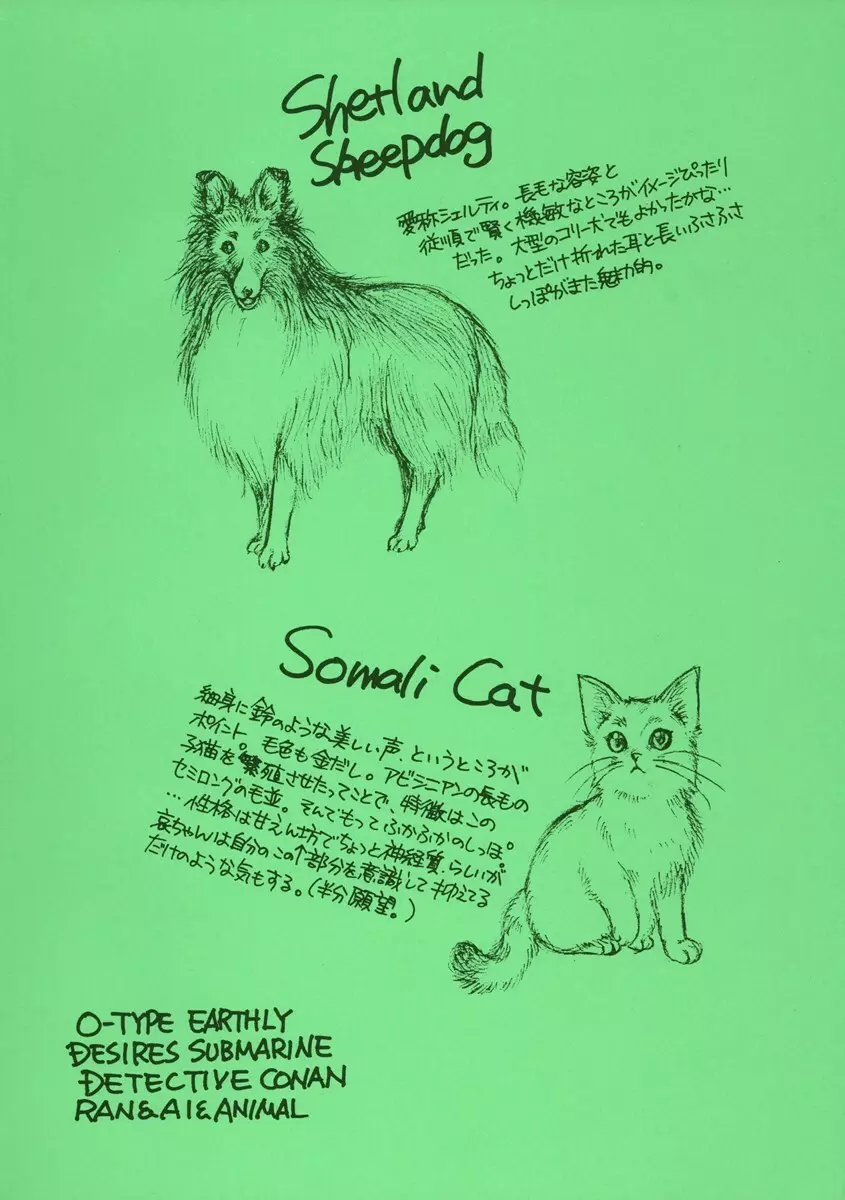 Shetland
Sheepdog
愛称シェルティ。長毛な容姿と
従順で賢く機敏なところがイメージぴったり
だった。大型のコリー犬でもよかったかな…
ちょっとだけ折れた耳と長いふさふさ
しっぽがまた魅力的。
Somali Cat
細身に鈴のような美しい声、というところが
ポイント。毛色も金だし。アビシニアンの長毛の
子猫を繁殖させたってことで、特徴はこの
セミロングの毛並。そんでもってふかふかのしっぽ。
…性格は甘えん坊でちょっと神経質、らしいが
哀ちゃんは自分のこの部分を意識して抑えてる
だけのような気もする。(半分願望。)
O-TYPE EARTHLY
DESIRES SUBMARINE
DETECTIVE CONAN
RAN&AI&ANIMAL